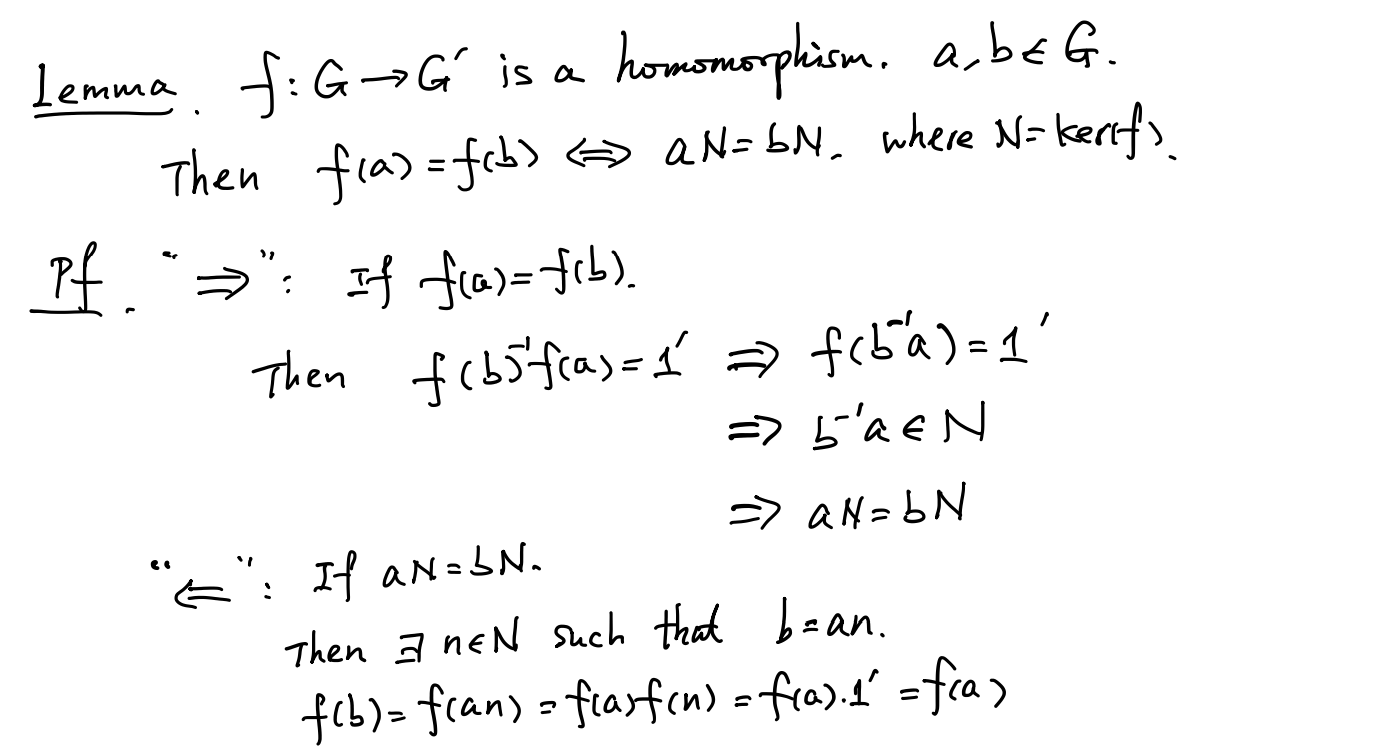 Lemma. f: G → G′ is a homomorphism. a, b ∈ G.
Then f(a) = f(b) ⇔ aN = bN. where N = ker(f).
Pf. "⇒": If f(a) = f(b).
Then f(b)⁻¹f(a) = 1′ ⇒ f(b⁻¹a) = 1′
⇒ b⁻¹a ∈ N
⇒ aN = bN
"⇐": If aN = bN.
Then ∃ n ∈ N such that b = an.
f(b) = f(an) = f(a)f(n) = f(a).1′ = f(a)